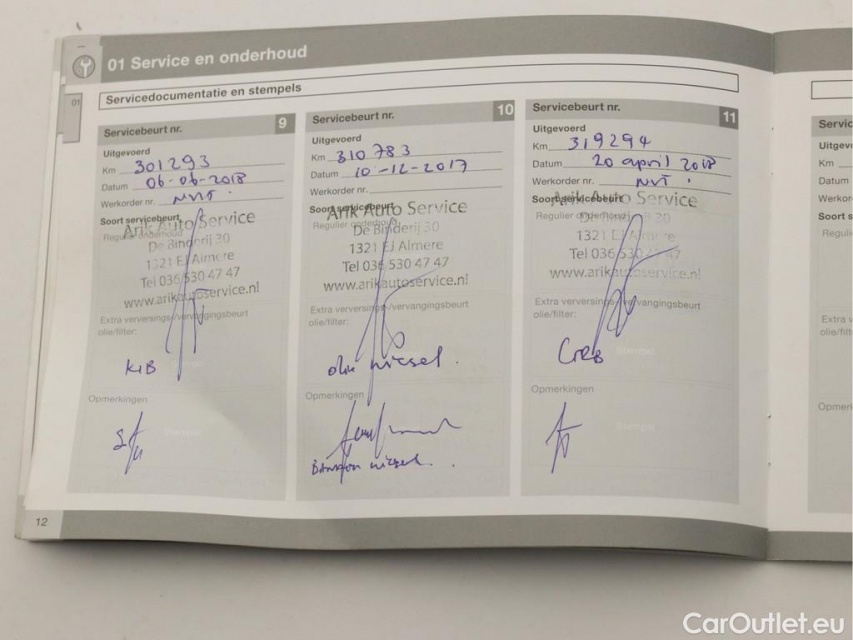 01 Service en onderhoud
01
Servicedocumentatie en stempels
Servicebeurt nr. 9
Uitgevoerd
Km 301293
Datum 06-06-2018
Werkorder nr. NVT.
Soort servicebeurt
Regulier onderhoud
Arik Auto Service
De Binderij 30
1321 EJ Almere
Tel 036 530 47 47
www.arikautoservice.nl
Extra verversings-/vervangingsbeurt
olie/filter:
Opmerkingen
Stempel
Servicebeurt nr. 10
Uitgevoerd
Km 310783
Datum 10-12-2017
Werkorder nr.
Soort servicebeurt
Regulier onderhoud
Arik Auto Service
De Binderij 30
1321 EJ Almere
Tel 036 530 47 47
www.arikautoservice.nl
Extra verversings-/vervangingsbeurt
olie/filter:
Opmerkingen
Servicebeurt nr. 11
Uitgevoerd
Km 319294
Datum 20 april 2018
Werkorder nr. NVT.
Soort servicebeurt
Regulier onderhoud
Arik Auto Service
De Binderij 30
1321 EJ Almere
Tel 036 530 47 47
www.arikautoservice.nl
Extra verversings-/vervangingsbeurt
olie/filter:
Stempel
Opmerkingen
Stempel
Servic
Uitgevo
Km
Datum
Werkor
Soort s
Regulie
Extra v
olie/filt
Opmer
12
CarOutlet.eu